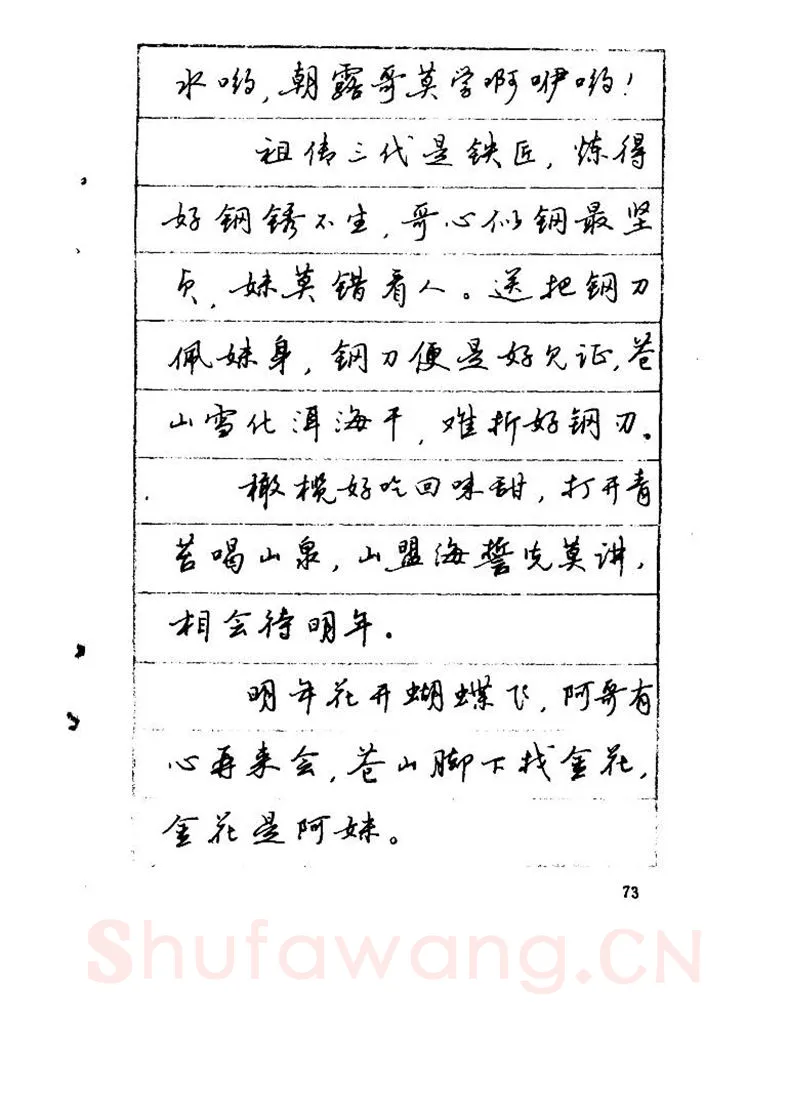 水哟，朝露哥莫学啊咿哟！
祖传三代是铁匠，炼得
好钢锈不生，哥心似钢最坚
贞，妹莫错看人。送把钢刀
佩妹身，钢刀便是好见证，苍
山雪化洱海干，难折好钢刃。
橄榄好吃回味甜，打开青
苔喝山泉，山盟海誓先莫讲，
相会待明年。
明年花开蝴蝶飞，阿哥有
心再来会，苍山脚下找金花，
金花是阿妹。
73
Shufawang.CN